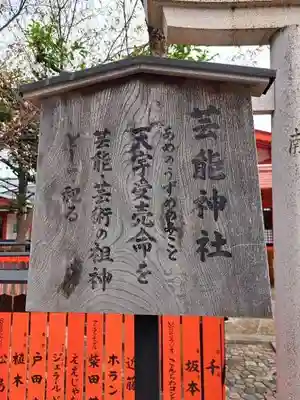 芸能神社
あめのうずめのみこと
天宇受売命を
芸能・芸術の祖神
として祀る
千
坂本
近藤
ホラン
柴田
ええじゃ
ジェラー
戸田
植木
松
南